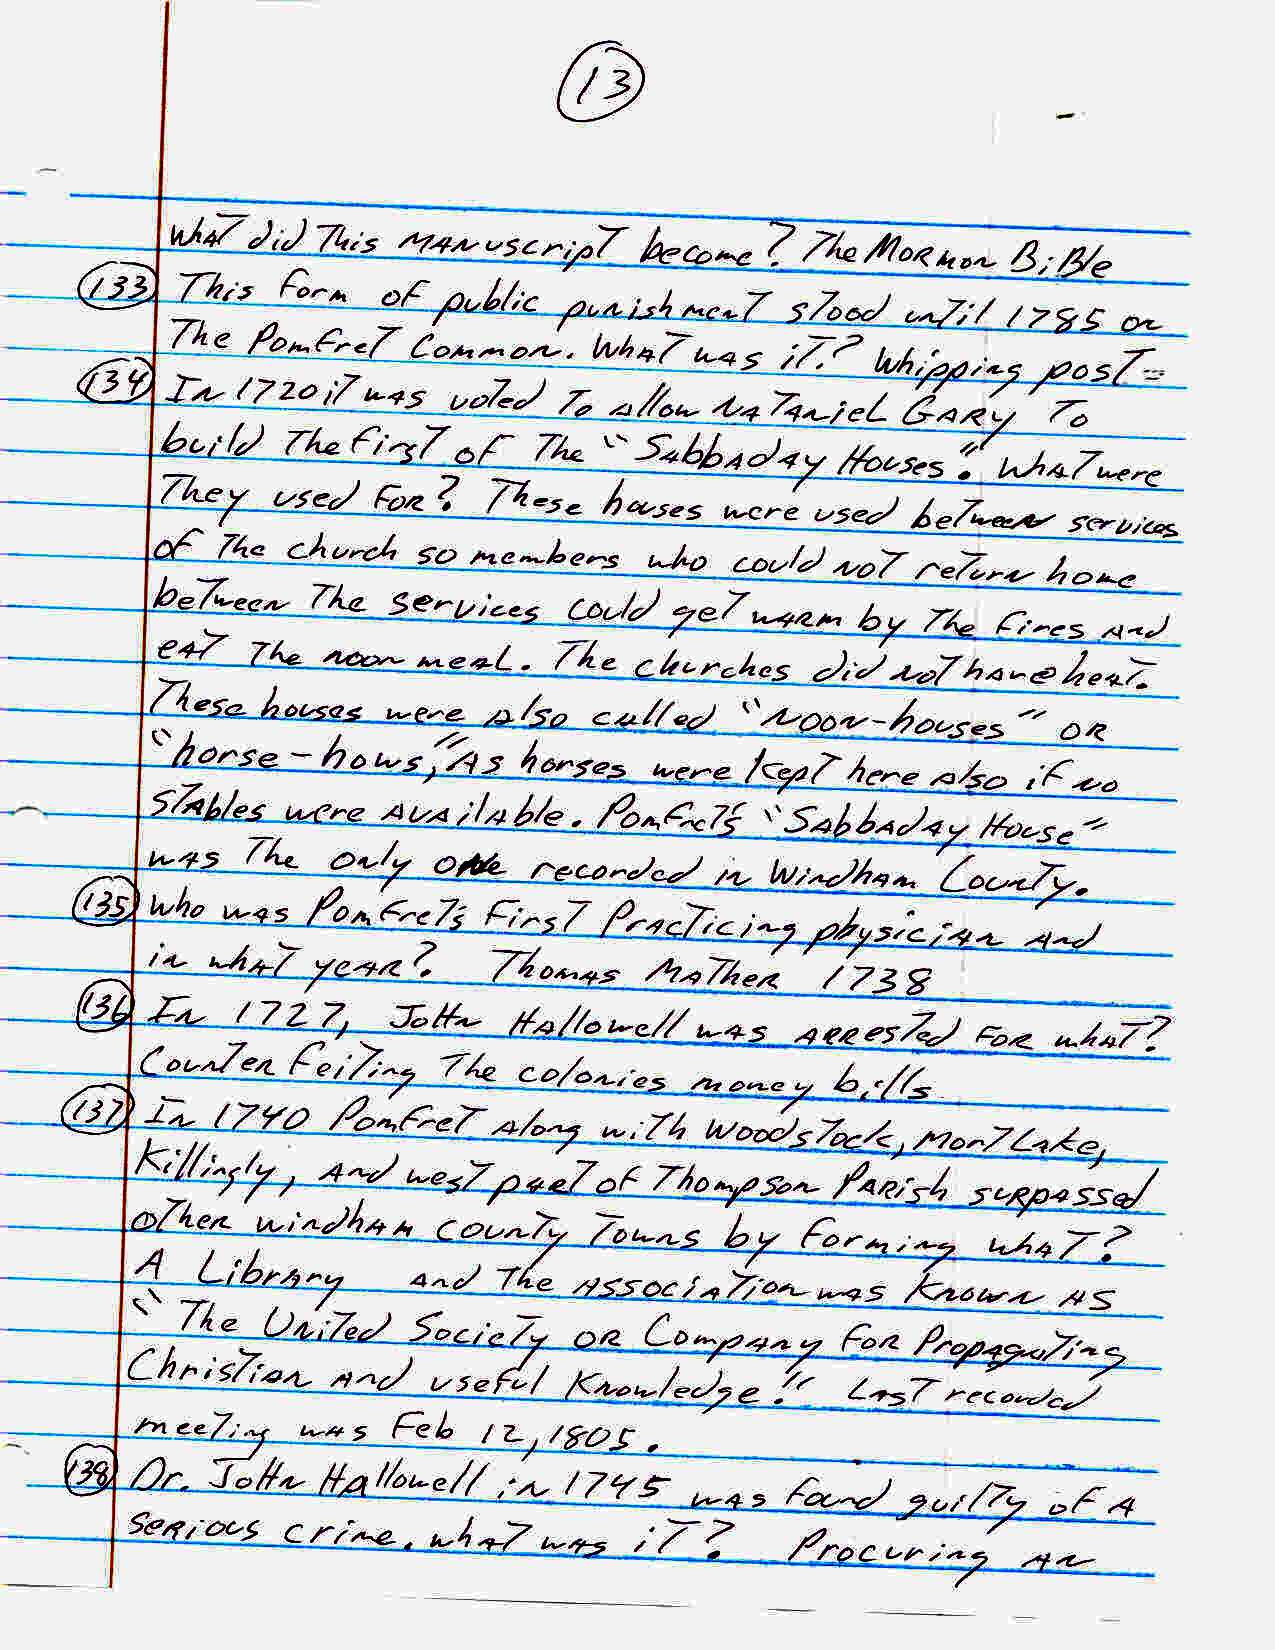 13
What did This Manuscript become? The Mormon Bible
133 This form of public punishment stood until 1785 on
The Pomfret Common. What was it? Whipping post
134 In 1720 it was voted To allow Nataniel Gary To
build The first of The "Sabbaday Houses". What were
They used For? These houses were used between services
of The church so members who could not return home
between The services could get warm by The fires and
eat The noon meal. The churches did not have heat.
These houses were also called "Noon-houses" or
"horse-hows," As horses were kept here also if no
stables were available. Pomfret's "Sabbaday House"
was The only one recorded in Windham County.
135 Who was Pomfret's First Practicing physician and
in what year? Thomas Mather 1738
136 In 1727, John Hallowell was arrested For what?
Counterfeiting The colonies money bills
137 In 1740 Pomfret along with Woodstock, MortLake,
Killingly, and west part of Thompson Parish surpassed
other Windham County Towns by forming what?
A Library and The association was Known as
"The United Society or Company for Propagating
Christian and useful Knowledge." Last recorded
meeting was Feb 12, 1805.
138 Dr. John Hallowell in 1745 was found guilty of a
serious crime. what was it? Procuring an